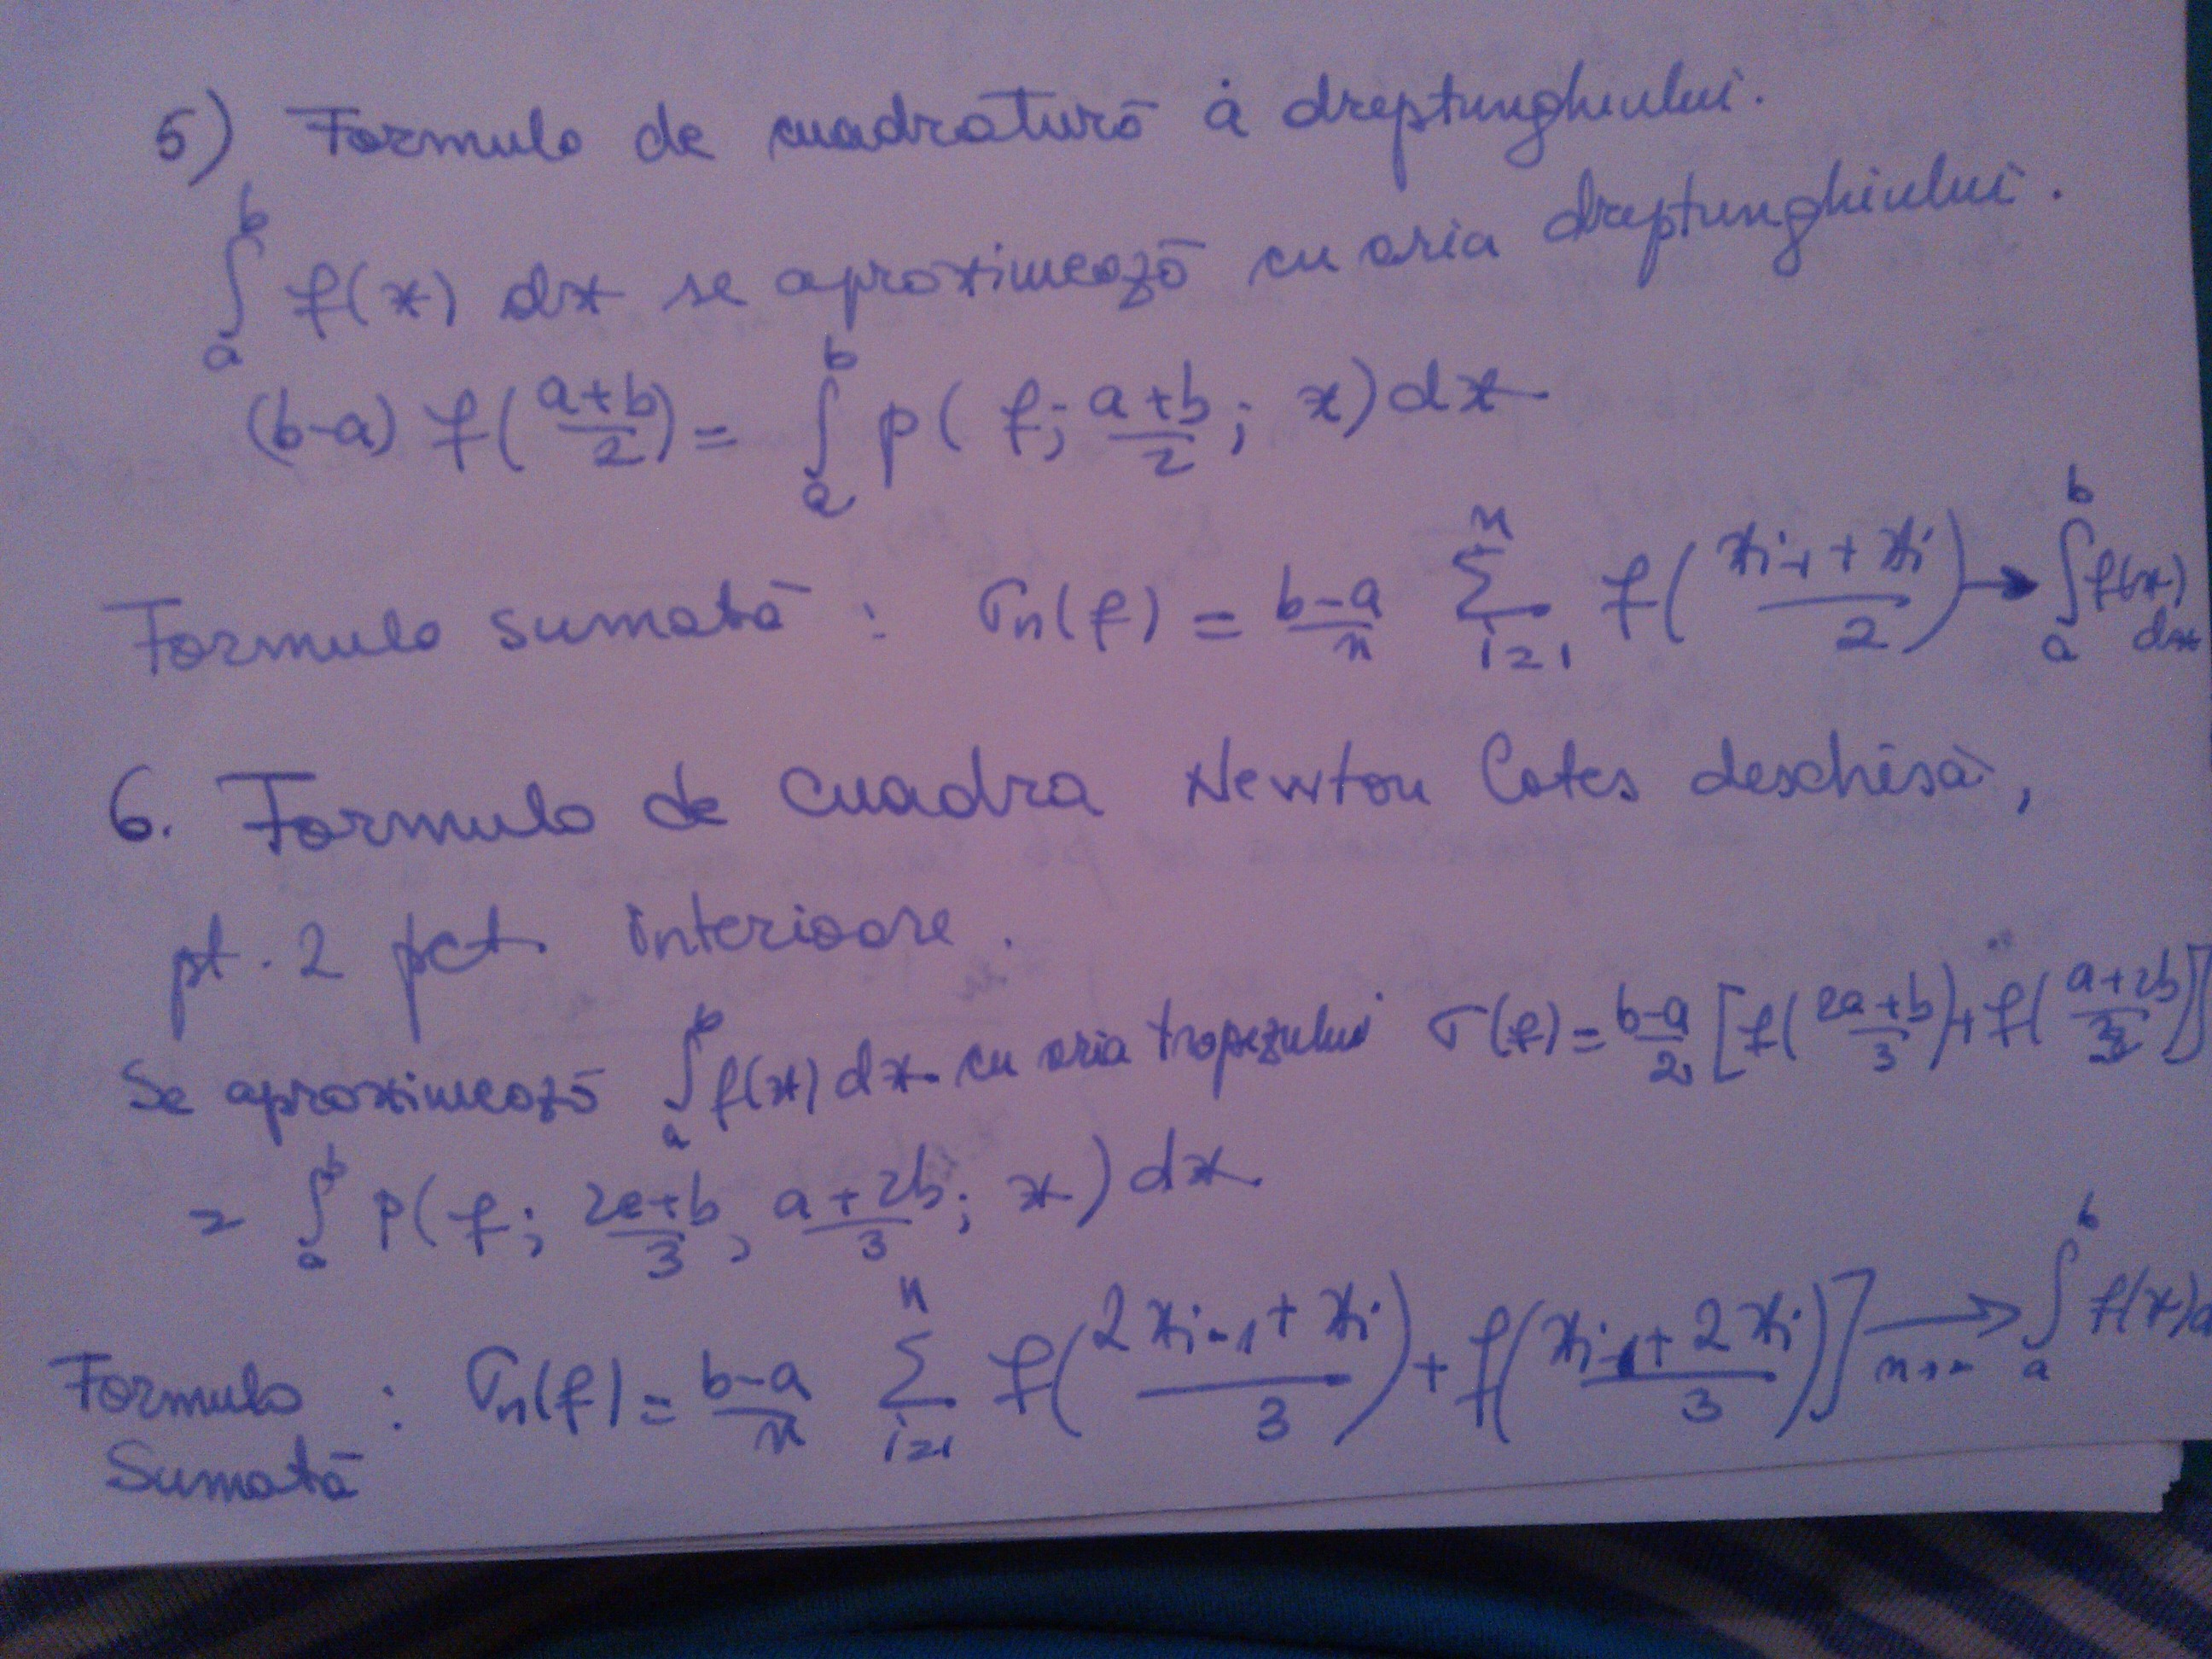 5) Formula de cuadratură a dreptunghiului.
∫_a^b f(x) dx se aproximează cu aria dreptunghiului.
(b-a) f((a+b)/2) = ∫_a^b p(f; (a+b)/2; x) dx
Formula sumată : σn(f) = (b-a)/n Σ_{i=1}^n f((xi-1 + xi)/2) → ∫_a^b f(x) dx
6. Formula de cuadra Newton Cotes deschisă,
pt. 2 pct. interioare.
Se aproximează ∫_a^b f(x) dx cu aria trapezului σ(f) = (b-a)/2 [f((2a+b)/3) + f((a+2b)/3)]
= ∫_a^b P(f; (2a+b)/3, (a+2b)/3; x) dx.
Formula : σn(f) = (b-a)/n Σ_{i=1}^n f((2xi-1 + xi)/3) + f((xi-1 + 2xi)/3)] → ∫_a^b f(x) d
Sumată